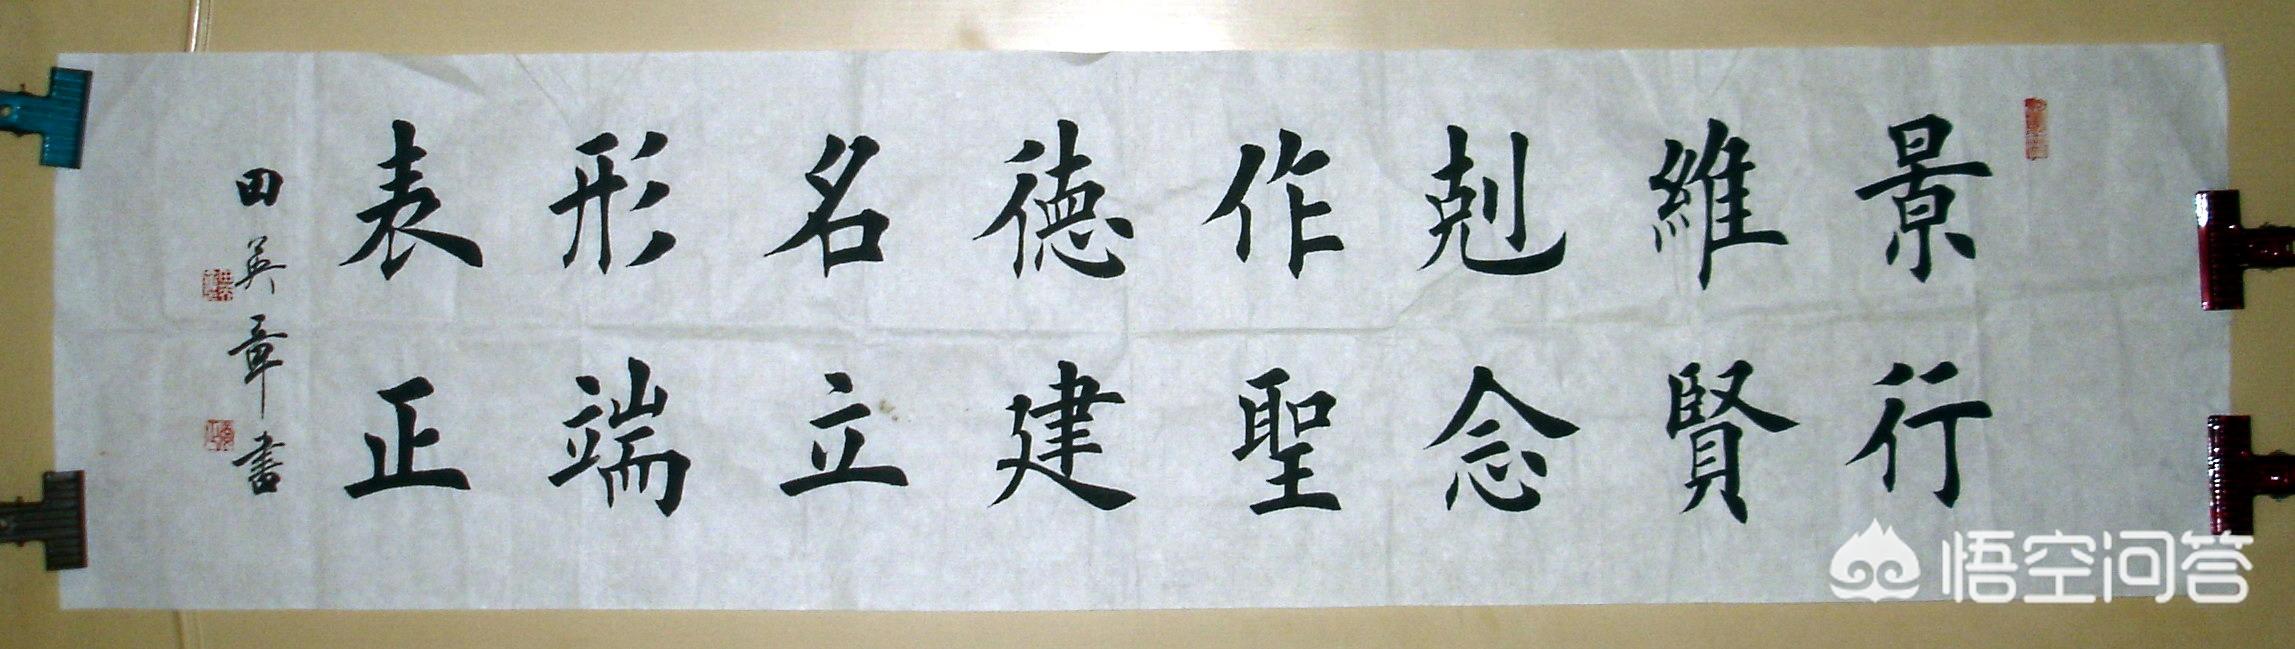 景行
維賢
剋念
作聖
德建
名立
形端
表正
田英章書
悟空问答